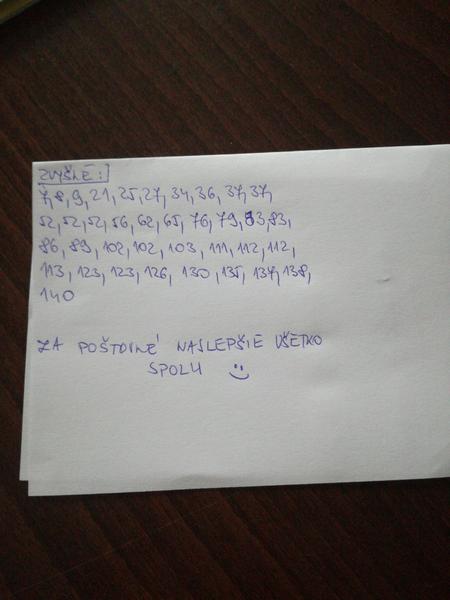 ZVYŠNÉ:
7, 8, 9, 21, 25, 27, 34, 36, 37, 37,
52, 52, 52, 56, 62, 65, 76, 79, 83, 83,
86, 89, 102, 102, 103, 111, 112, 112,
113, 123, 123, 126, 130, 135, 137, 138,
140
ZA POŠTOVNÉ NAJLEPŠIE VŠETKO
SPOLU :)